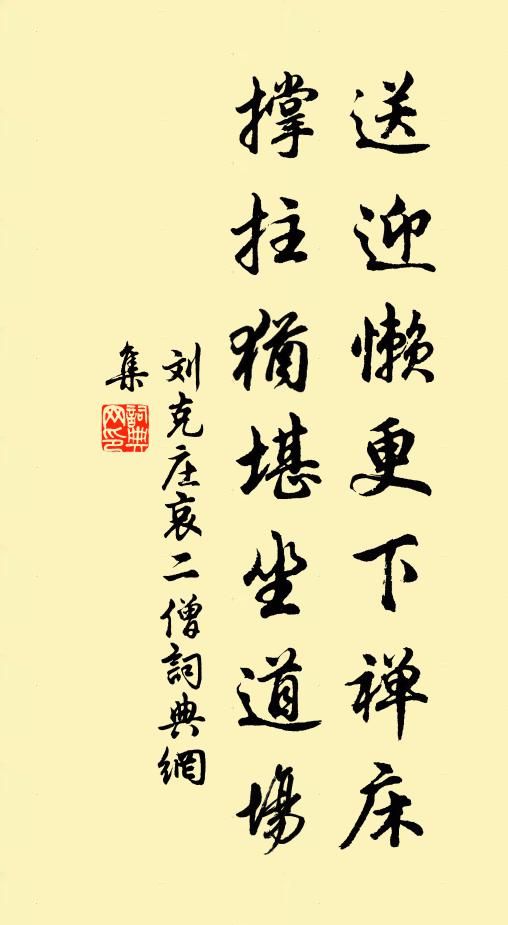 送迎懒更下禅床
撑拄犹堪坐道場
刘克庄哀二僧詞典網
集
詞典
网印